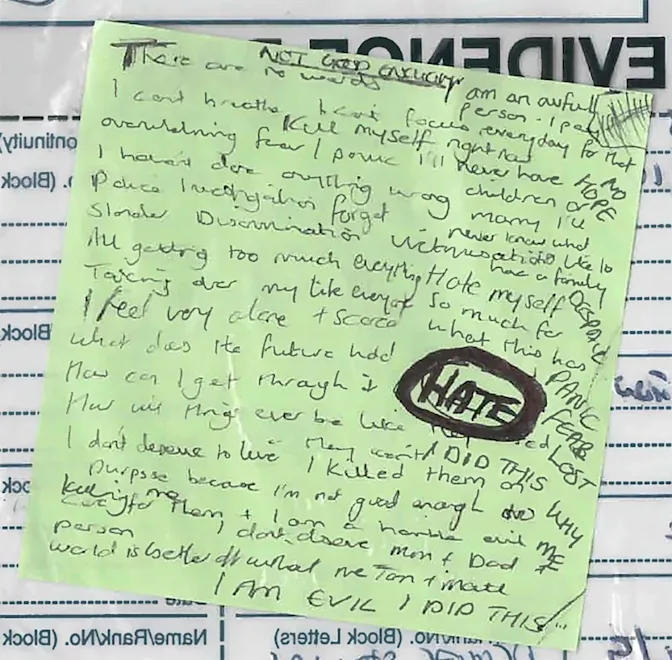 NOT GOOD ENOUGH
There are no words
I am an awful person. I pay
I cant breathe I cant focus everyday for that
Kill myself right now
overwhelming fear / panic I'll never have
NO HOPE
I haven't done anything wrong children or
marry I'll
Police Investigation forget never know what
its like to
Slander Discrimination Victimisation have a family
All getting too much everything Hate myself
DESPAIR
Taking over my life everyone So much for
I feel very alone + scared what this has
What does the future hold
PANIC
How can I get through it
HATE
FEAR
How will things ever be like
LOST
I don't deserve to live They won't I DID THIS
I killed them on
purpose because I'm not good enough to WHY
care for them + I am a horrible evil ME
killing me
person I dont deserve mum + Dad
world is better off without me
I AM EVIL I DID THIS
EVIDENCE
(Block
Name/Rank/No. (Block
No. (Block Letters)